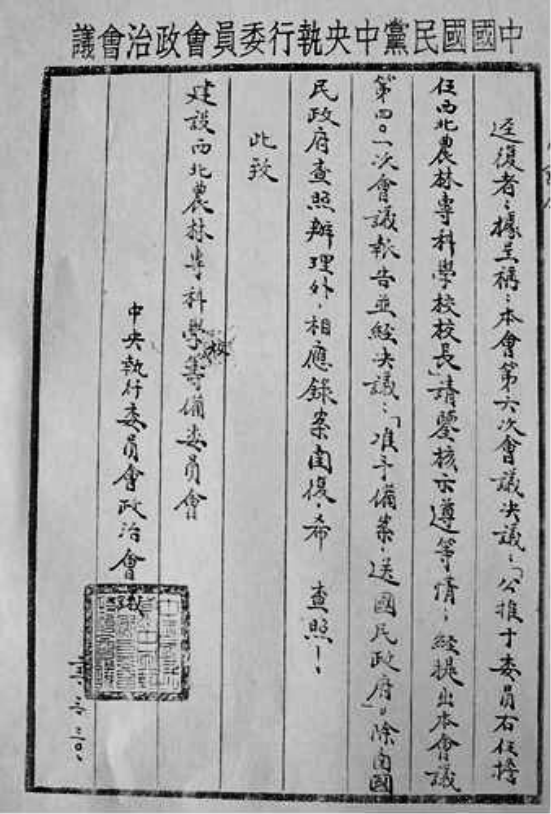 中國國民黨中央執行委員會政治會議
逕復者：據呈稱：本會第六次會議决議：「公推于委員右任擔
任西北農林專科學校校長」請鑒核示遵等情；經提出本會議
第四〇一次會議報告並經决議：「准予備案，送國民政府」。除函國
民政府查照辦理外，相應錄案函復，希 查照！
此致
建設西北農林專科學校籌備委員會
中央執行委員會政治會